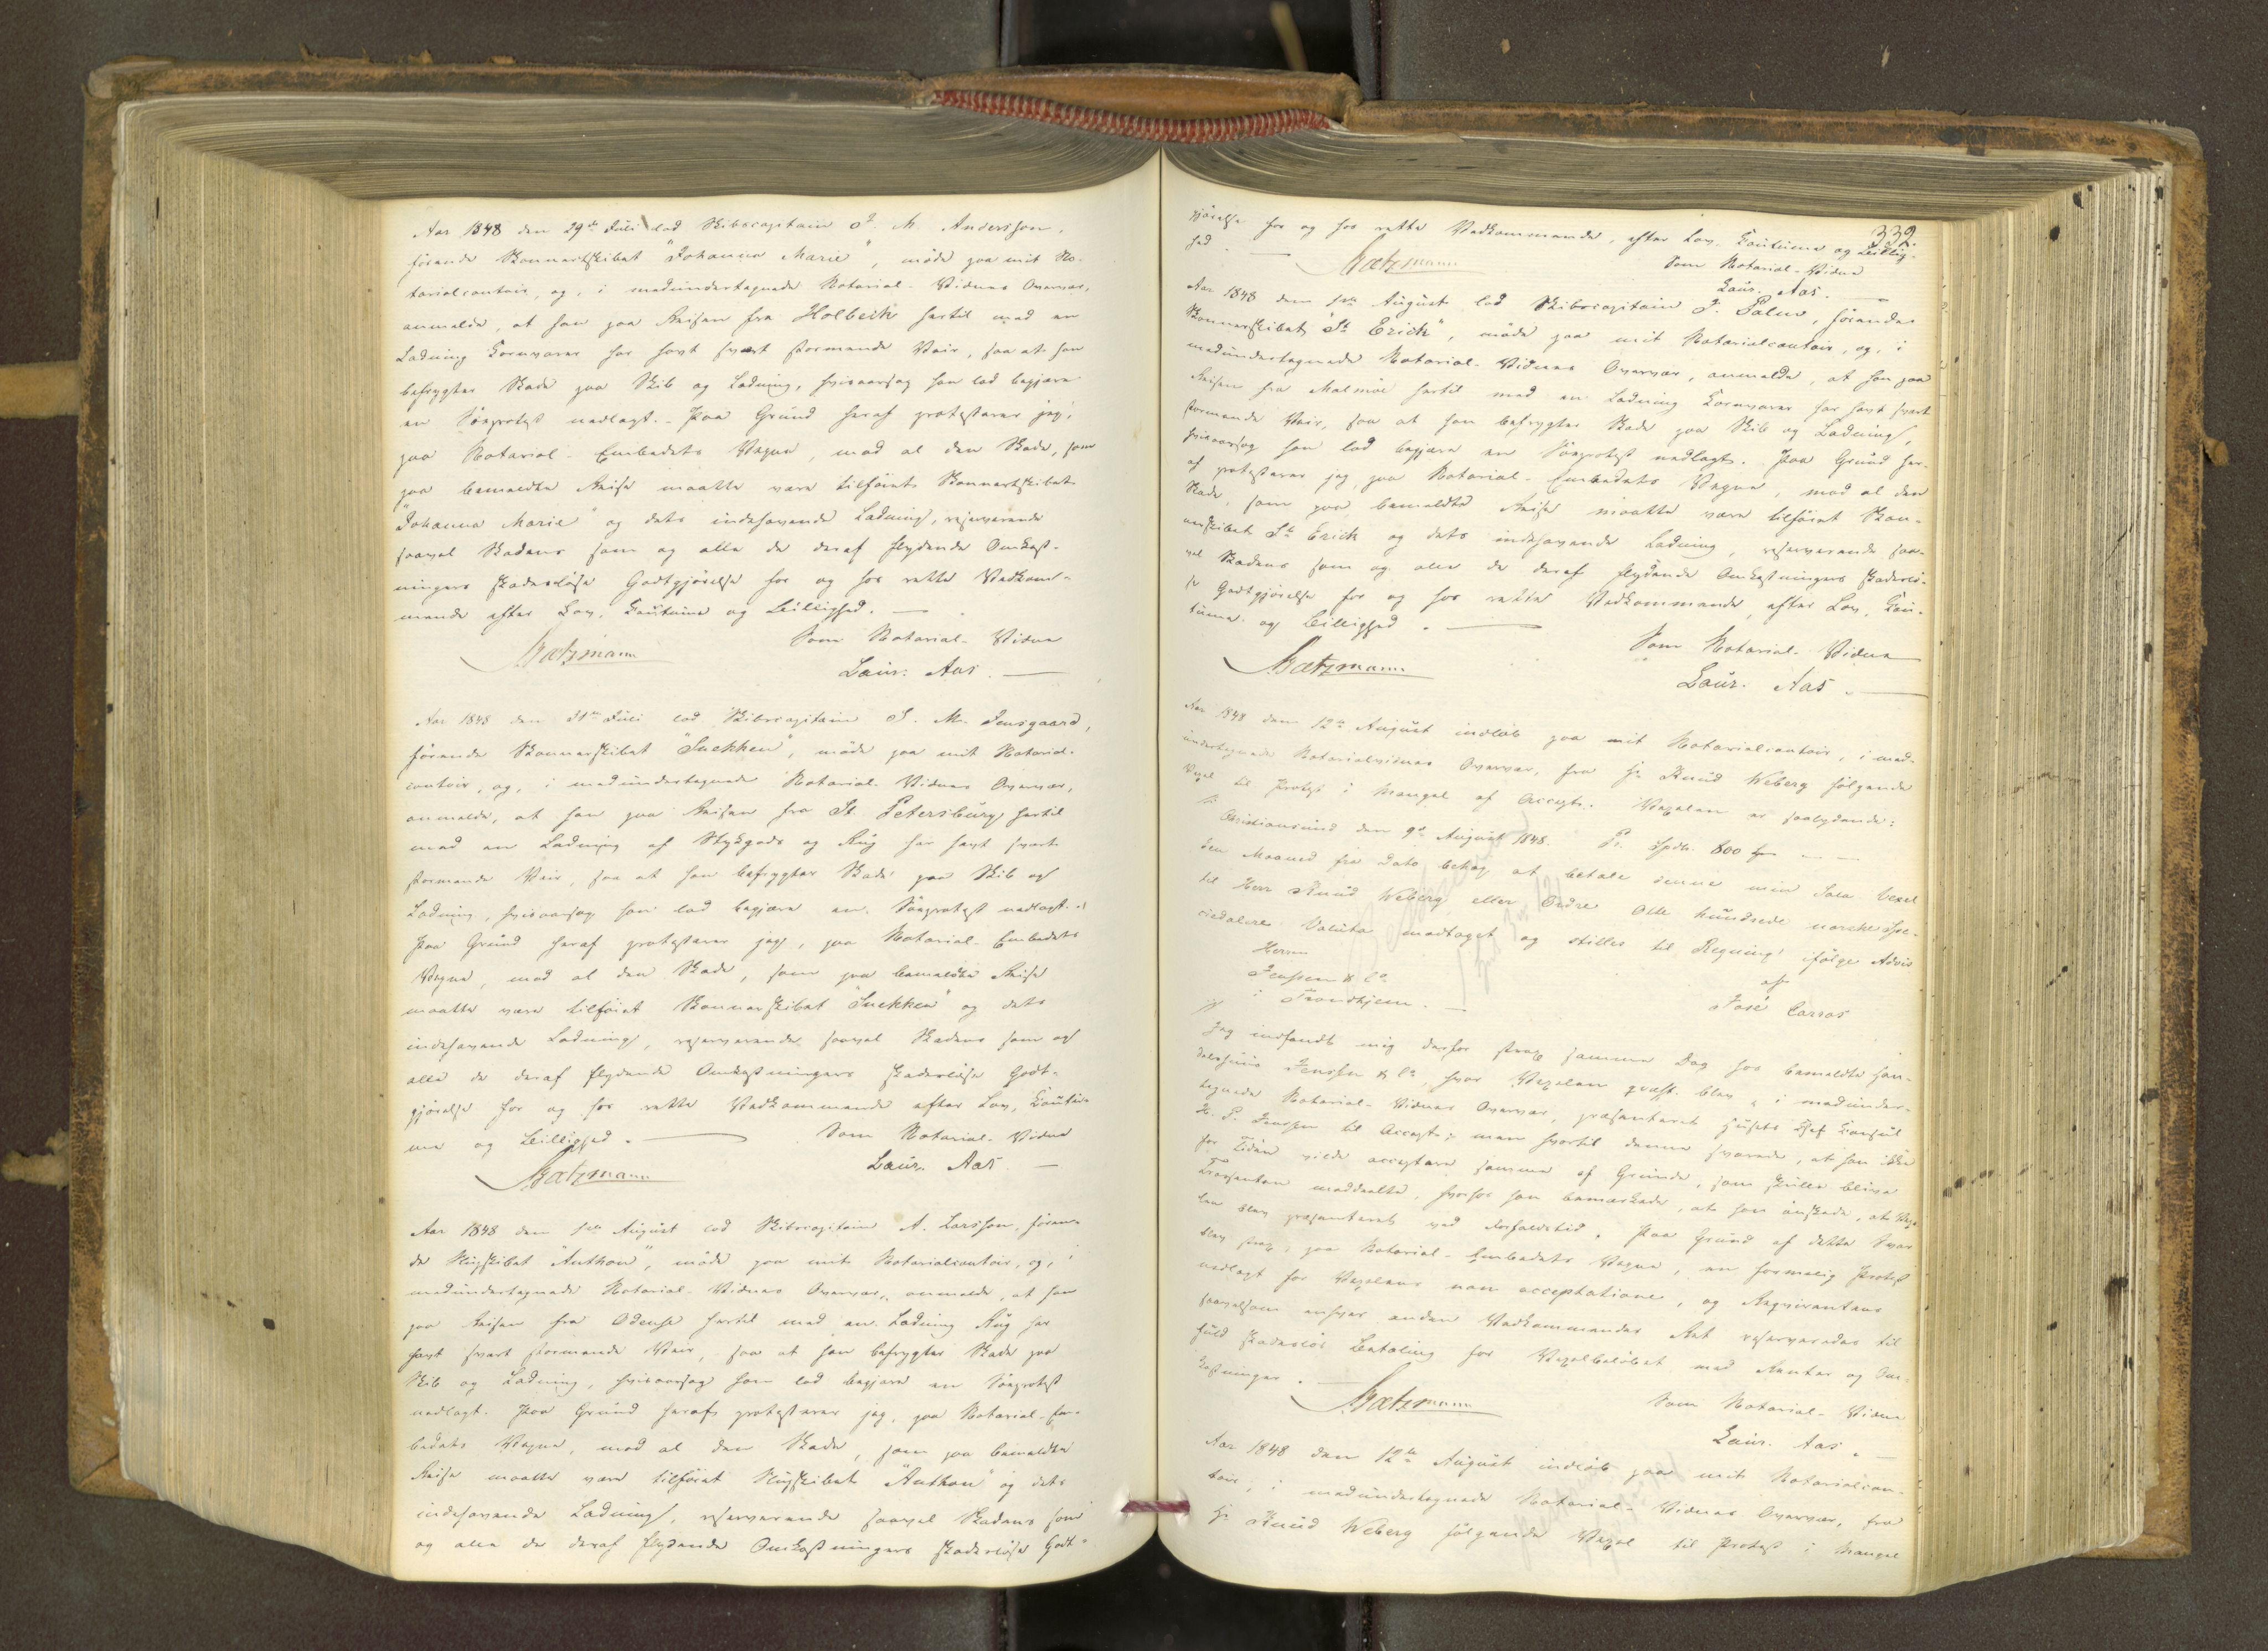 Aar 1848 den 29de Juli lod Skibscapitain O. M. Andersson,
förende Skonnertskibet "Johanna Marie", möde paa mit No-
tarialcontoir, og, i medundertegnede Notarial-Vidnes Overvær,
anmelde, at han paa Reisen fra Holbeck hertil med en
Ladning Kornvarer har havt svært stormende Veir, saa at han
befrygter Skade paa Skib og Ladning, hvisaarsag han lod begjære
en Söeprotest nedlagt. - Paa Grund heraf protesterer jeg,
paa Notarial-Embedets Vegne, mod al den Skade, som
paa bemeldte Reise maatte være tilföiet Skonnertskibet
"Johanna Marie" og dets indehavende Ladning, reserverende
saavel Skadens som og alle de deraf flydende Omkost-
ningers skadeslöse Godtgjörelse for og hos rette Vedkom-
mende efter Lov, Coutume og Billighed. —
Som Notarial-Vidne
Bætzmann
Laur. Aas. —
Aar 1848 den 31te Juli lod Skibscapitain S. M. Jensgaard,
förende Skonnerskibet "Snekken", möde paa mit Notarial-
contoir, og, i medundertegnede Notarial-Vidnes Overvær,
anmelde, at han paa Reisen fra St. Petersburg hertil
med en Ladning af Stykgods og Rug har havt svært
stormende Veir, saa at han befrygter Skade paa Skib og
Ladning, hvisaarsag han lod begjære en Söeprotest nedlagt. -
Paa Grund heraf protesterer jeg, paa Notarial-Embedets
Vegne, mod al den Skade, som paa bemeldte Reise
maatte være tilföiet Skonnerskibet "Snekken" og dets
indehavende Ladning, reserverende saavel Skadens som og
alle de deraf flydende Omkostningers skadeslöse Godt-
gjörelse for og hos rette Vedkommende efter Lov, Coutu-
me og Billighed. —
Som Notarial-Vidne
Bætzmann
Laur. Aas. —
Aar 1848 den 1ste August lod Skibscapitain A. Larsson, fören-
de Slupskibet "Anthon", möde paa mit Notarialcontoir, og, i
medundertegnede Notarial-Vidnes Overvær, anmelde, at han
paa Reisen fra Odense hertil med en Ladning Rug har
havt svært stormende Veir, saa at han befrygter Skade paa
Skib og Ladning, hvisaarsag han lod begjære en Söeprotest
nedlagt. Paa Grund heraf protesterer jeg, paa Notarial-Em-
bedets Vegne, mod al den Skade, som paa bemeldte
Reise maatte være tilföiet Slupskibet "Anthon" og dets
indehavende Ladning, reserverende saavel Skadens som
og alle de deraf flydende Omkostningers skadeslöse Godt-
332.
gjörelse for og hos rette Vedkommende, efter Lov, Coutume og Billig-
hed. —
Som Notarial-Vidne
Bætzmann
Laur. Aas. —
Aar 1848 den 1ste August lod Skibscapitain J. Palm, förende
Skonnerskibet "St Erick", möde paa mit Notarialcontoir, og, i
medundertegnede Notarial-Vidnes Overvær, anmelde, at han paa
Reisen fra Malmöe hertil med en Ladning Kornvarer har havt svært
stormende Veir, saa at han befrygter Skade paa Skib og Ladning,
hvisaarsag han lod begjære en Söeprotest nedlagt. Paa Grund her-
af protesterer jeg, paa Notarial-Embedets Vegne, mod al den
Skade, som paa bemeldte Reise maatte være tilföiet Skon-
nerskibet St Erick og dets indehavende Ladning, reserverende saa-
vel Skadens som og alle de deraf flydende Omkostningers skadeslö-
se Godtgjörelse for og hos rette Vedkommende, efter Lov, Cou-
tume og Billighed. —
Som Notarial-Vidne
Bætzmann
Laur. Aas. —
Aar 1848 den 12te August indlöb paa mit Notarialcontoir, i med-
undertegnede Notarialvidnes Overvær, fra Hr Knud Weberg fölgende
Vexel til Protest i Mangel af Accept. Vexelen er saalydende:
Christiansund den 9de August 1848. Pr. Spdlr. 800
Een Maaned fra Dato behag at betale denne min Sola Vexel
til Herr Knud Weberg eller Ordre Otte hundrede norske Spe-
ciedalere Valuta modtaget og stilles til Regning ifölge Advis
Herrer
af
Jenssen & Co
José Carros
i Trondhjem. —
Jeg indfandt mig derfor strax samme Dag hos bemeldte Han-
delshuus Jenssen & Co, hvor Vexelen blev, i medunder-
tegnede Notarial-Vidnes Overvær, præsenteret Husets Chef Consul
Jenssen til Accept; men hvortil denne svarede, at han ikke
for Tiden vilde acceptere samme af Grunde, som skulle blive
Trassenten meddeelte, hvorhos han bemærkede, at han önskede, at Vexe-
len blev præsenteret ved Forfaldstid. Paa Grund af dette Svar
blev strax, paa Notarial-Embedets Vegne, en formelig Protest
nedlagt for Vexelens non acceptatione, og Reqvirentens
saavelsom enhver anden Vedkommendes Ret reserveredes til
fuld skadeslös Betaling for Vexelbelöbet med Renter og Om-
kostninger. —
Som Notarial-Vidne
Bætzmann
Laur. Aas. —
Aar 1848 den 12te August indlöb paa mit Notarialcon-
toir, i medundertegnede Notarial-Vidnes Overvær, fra
Hr Knud Weberg fölgende Vexel til Protest i Mangel